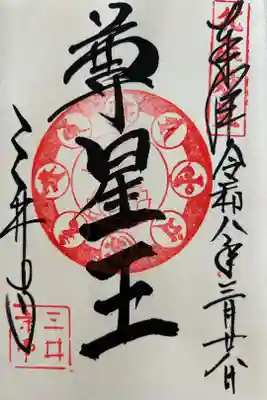 奉拝 令和八年三月廿八日
尊星王
三井寺
三井
寺印